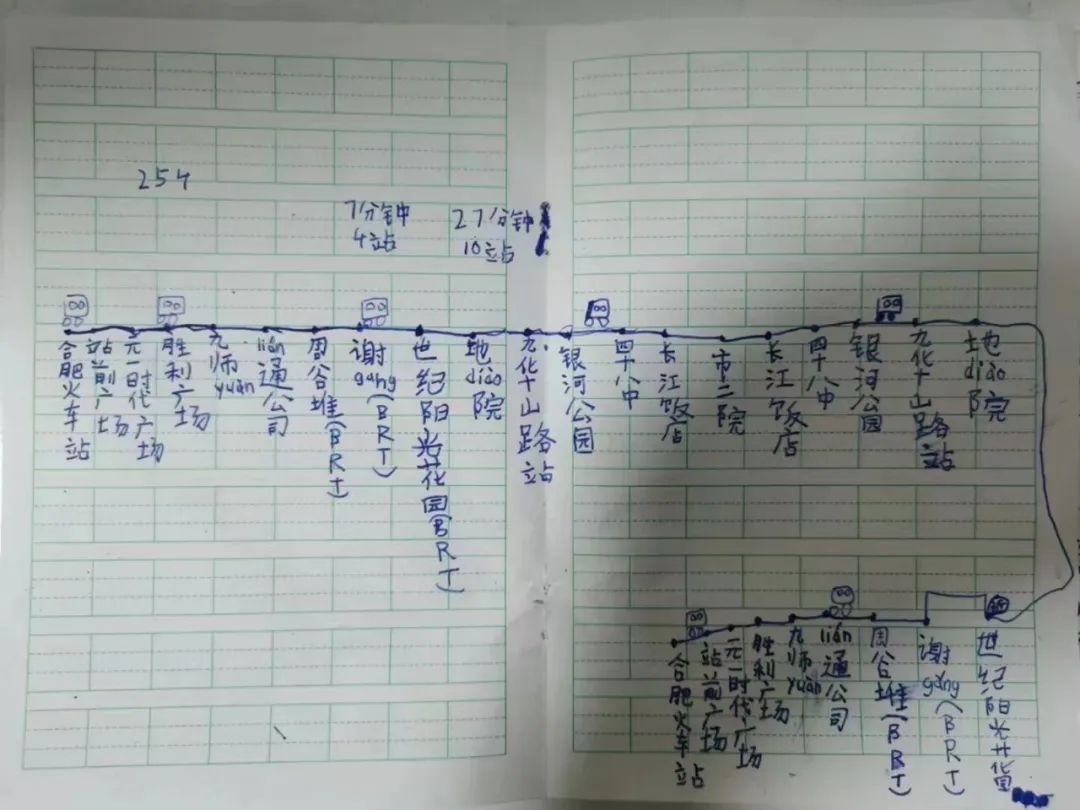 254
7分钟
4站
27分钟
10站
合肥火车站
站前广场
元一时代广场
胜利广场
九师yuàn
lián通公司
周谷堆(BRT)
谢gǎng(BRT)
世纪阳光花园(BRT)
地diào院
九华山路站
银河公园
四十八中
长江饭店
市二院
长江饭店
四十八中
银河公园
九华山路站
地diào院
合肥火车站
站前广场
元一时代广场
胜利广场
九师yuàn
lián通公司
周谷堆(BRT)
谢gǎng(BRT)
世纪阳光